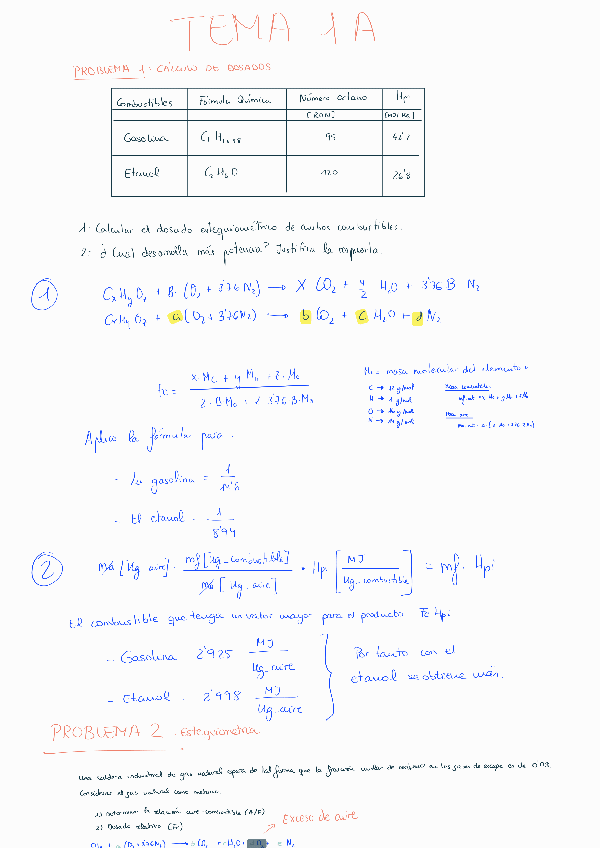 TEMA 1A
PROBLEMA 1: CÁLCULO DE DOSADOS
Combustibles Fórmula Química Número octano Hp
[RON] [MJ/Kg]
Gasolina 95
Etanol C2 H6 O 120 26'8
1- Calcular el dosado estequiométrico de ambos combustibles.
2- ¿Cual desarrolla más potencia? Justifica la respuesta
1 Cx Hy Oz + B· (O2 + 3'76 N2) → X CO2 + y/2 H2O + 3'76 B N2
Cx Hy Oz + a (O2 + 3'76 N2) → b CO2 + c H2O + d N2
Mi = masa molecular del elemento i
C → 12 g/mol
H → 1 g/mol
O → 16 g/mol
N → 14 g/mol
Aplico la fórmula para:
- La gasolina =
- El etanol 1/8'94
2 ma [Kg aire] · mf [Kg-combustible] / ma [Kg-aire] · Hpi [MJ / Kg-combustible] = mf · Hpi
El combustible que tenga un valor mayor para el producto Fe Hpi
- Gasolina 2'925 MJ / Kg-aire
- Etanol 2'998 MJ / Kg-aire
Por tanto con el
etanol se obtiene más.
PROBLEMA 2. Estequiometria
Una caldera industrial de gas natural opera de tal forma que la fracción molar de en los gases de escape es de
Considerar el gas natural como metano.
1) Determinar la relación aire combustible (A/F)
2) Dosado relativo (Fr)
Exceso de aire